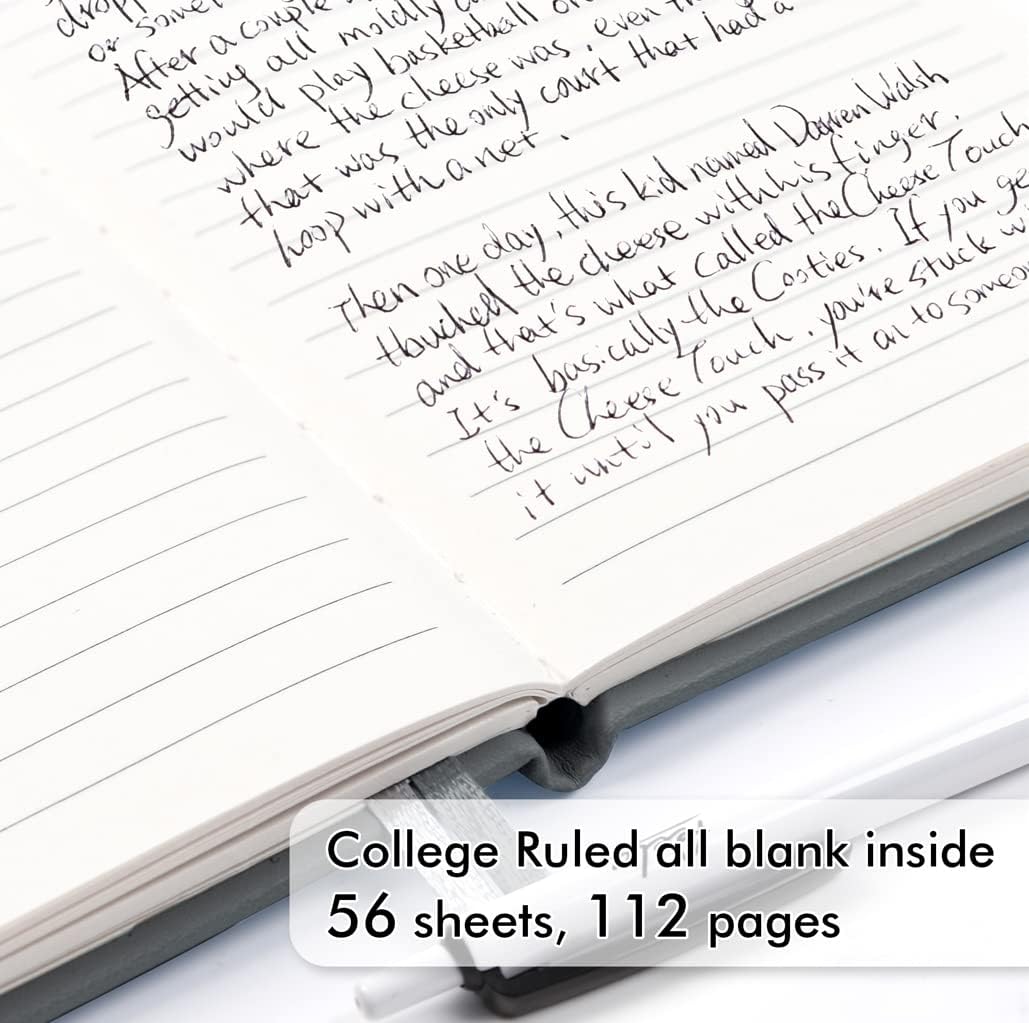 dropp
or some
After a couple
getting all moldly a
would play basketball o
where the cheese was, even th
that was the only court that had a
hoop with a net.
Then one day, this kid named Darren Walsh
touched the cheese with his finger.
and that's what called the Cheese Touch
It's basically the Cooties. If you ge
the Cheese Touch, you're stuck wi
it until you pass it on to someon
College Ruled all blank inside
56 sheets, 112 pages